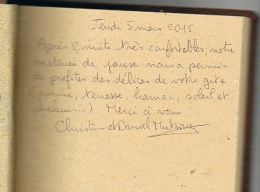 Jeudi 5 mars 2015
Après 2 nuits très confortables, notre
de pause nous a permis
de profiter des délices de votre gîte
hamac, soleil et
). Merci à vous
Christine et Daniel